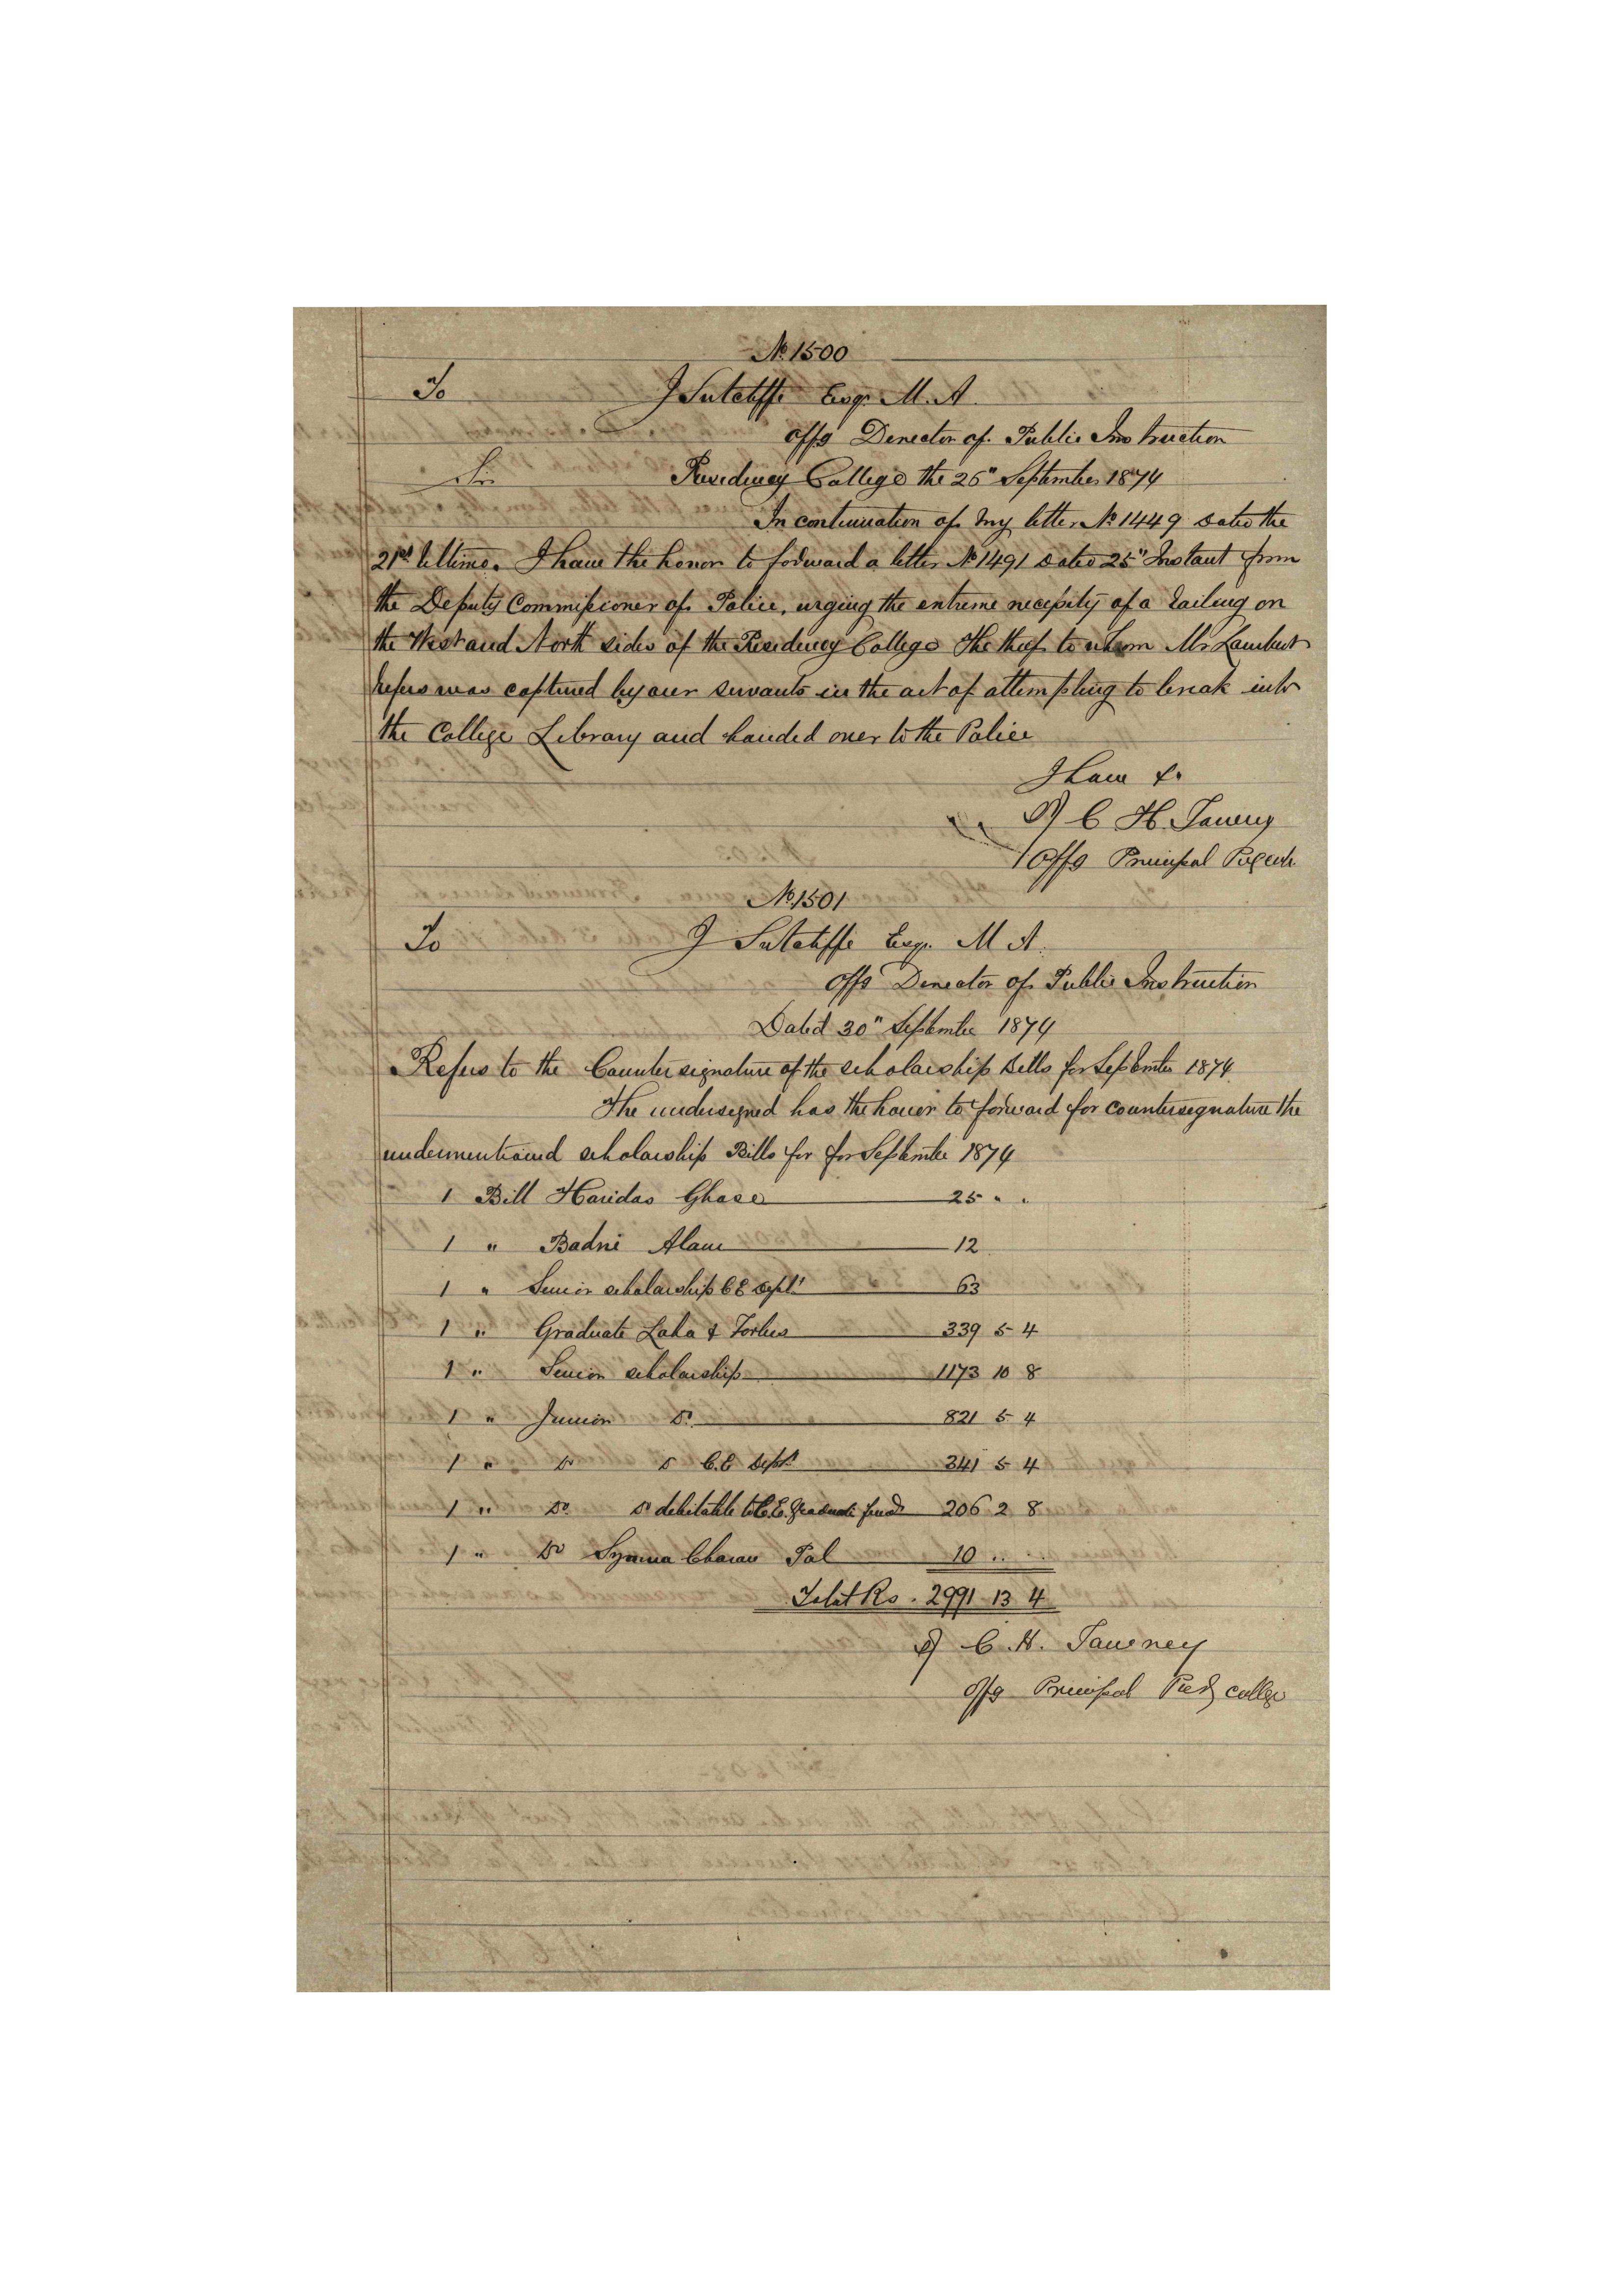 No. 1500
To J Sutcliffe Esqr. M. A.
Offg Director of Public Instruction
Sir Presidency College the 26" September 1874
In continuation of my letter No 1449 dated the
21st Ultimo. I have the honor to forward a letter No 1491 dated 25" Instant from
the Deputy Commissioner of Police, urging the extreme necessity of a railing on
the West and North sides of the Presidency College The thief to whom Mr Lambert
refers was captured by our servants in the act of attempting to break into
the College Library and handed over to the Police
I have &.
Sd/ C H. Tawney
Offg Principal
No. 1501
To J Sutcliffe Esqr. M A.
Offg Director of Public Instruction
Dated 30" September 1874
Refers to the Countersignature of the scholarship bills for September 1874
The undersigned has the honor to forward for countersignature the
undermentioned scholarship Bills for for September 1874
1 Bill Haridas Ghose 25 " "
1 " Badri Alam 12
1 " Senior scholarship C E Dept. 63
1 " Graduate Laha & Forbes 339 5 4
1 " Senior scholarship 1173 10 8
1 " Junior Do. 821 5 4
1 " Do Do C.E Dept. 341 5 4
1 " Do. Do debitable to C.E. Graduate fund 206 2 8
1 " Do Syama Charan Pal 10 " "
Total Rs. 2991 13 4
Sd/ C. H. Tawney
Offg Principal Presy college